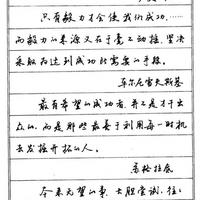 只有毅力才会使我们成功……
而毅力的来源又在于毫不动摇，坚决
采取为达到成功所需要的手段。
车尔尼雪夫斯基
最有希望的成功者，并不是才干出
众的，而是那些最善于利用每一时机
去发掘开拓的人。
苏格拉底
今来无望的事，大胆尝试，往往